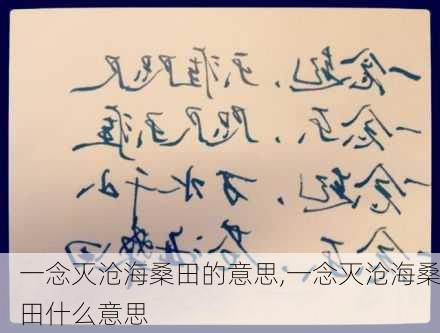 一念起,天涯咫尺
一念灭,咫尺天涯
一念起,万水千山
一念灭,沧海桑田
一念灭沧海桑田的意思,一念灭沧海桑
田什么意思